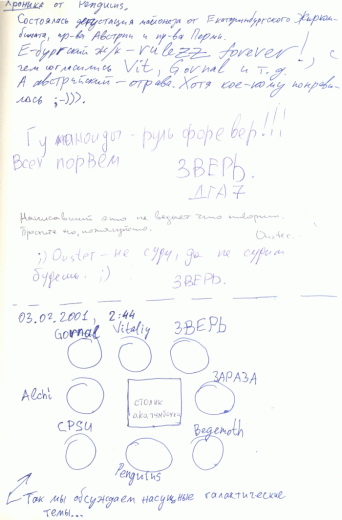 Хроника от Penguins.
Состоялась дегустация майонеза от Екатеринбургского Жирком-
бината, пр-ва Австрии и пр-ва Перми.
Е-бургский ж/к - rulezz forever!, с
чем согласились Vit, Gornal и т.д.
А австрийский - отрава. Хотя кое-кому понрави-
лась ;-))).
Гуманоиды - руль форевер!!!
Всех порвём
ЗВЕРЬ.
ДГА7
Написавший это не ведает что творит.
Простите его, пожалуйста.
Ouster.
;) Ouster - не суди, да не судим
будешь. ;)
ЗВЕРЬ.
03.02.2001, 2:44
Gornal Vitaliy ЗВЕРЬ
Alchi ЗАРАЗА
столик
aka тумбочка
CPSU Begemoth
Penguins
Так мы обсуждаем насущные галактические
темы...